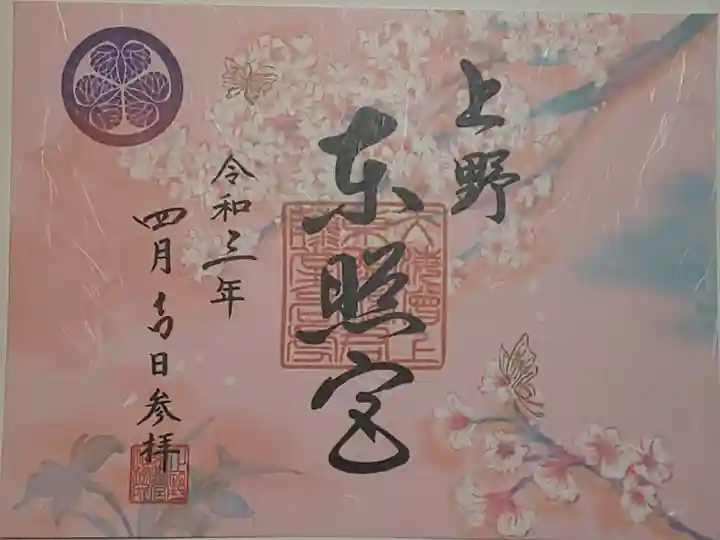 上野
東照宮
令和三年
四月吉日参拝